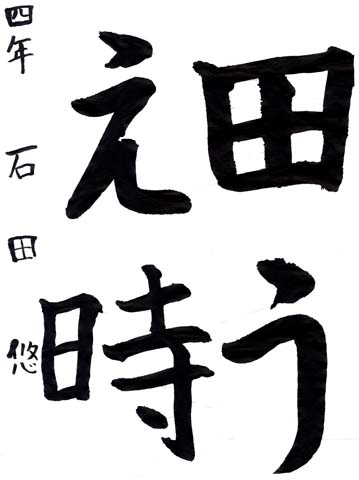 田う
え時
四年 石田悠